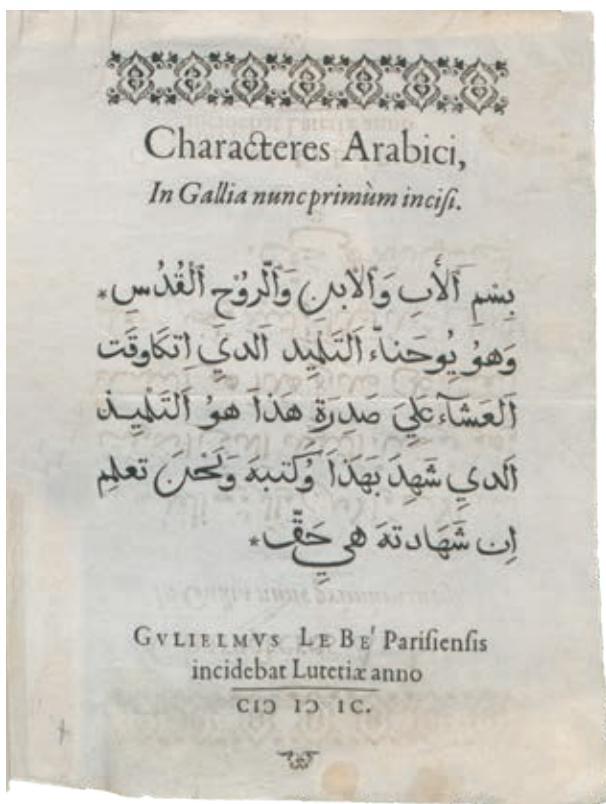 Characteres Arabici,
In Gallia nunc primùm incisi.
بِسْمِ ٱلْأَبِ وَٱلْٱبنِ وَٱلْرُوْحِ ٱلْقُدُسِ*
وَهوُ يُوحَناَّء ٱلتَلِمِيد ٱلديَ اِتكَاوقَت
ٱلعَشآَء عَليَ صَدرَةِ هَذا هوُ ٱلتَلمِيذ
ٱلديِ شَهِدَ بَهَذَا وُكتبهَ وَنَحْنَ تعلِم
اِن شَهَادتهَ هيِ حَقّ*
GVLIELMVS LE BE' Parisiensis
incidebat Lutetiæ anno
CIↃ IↃ IC.